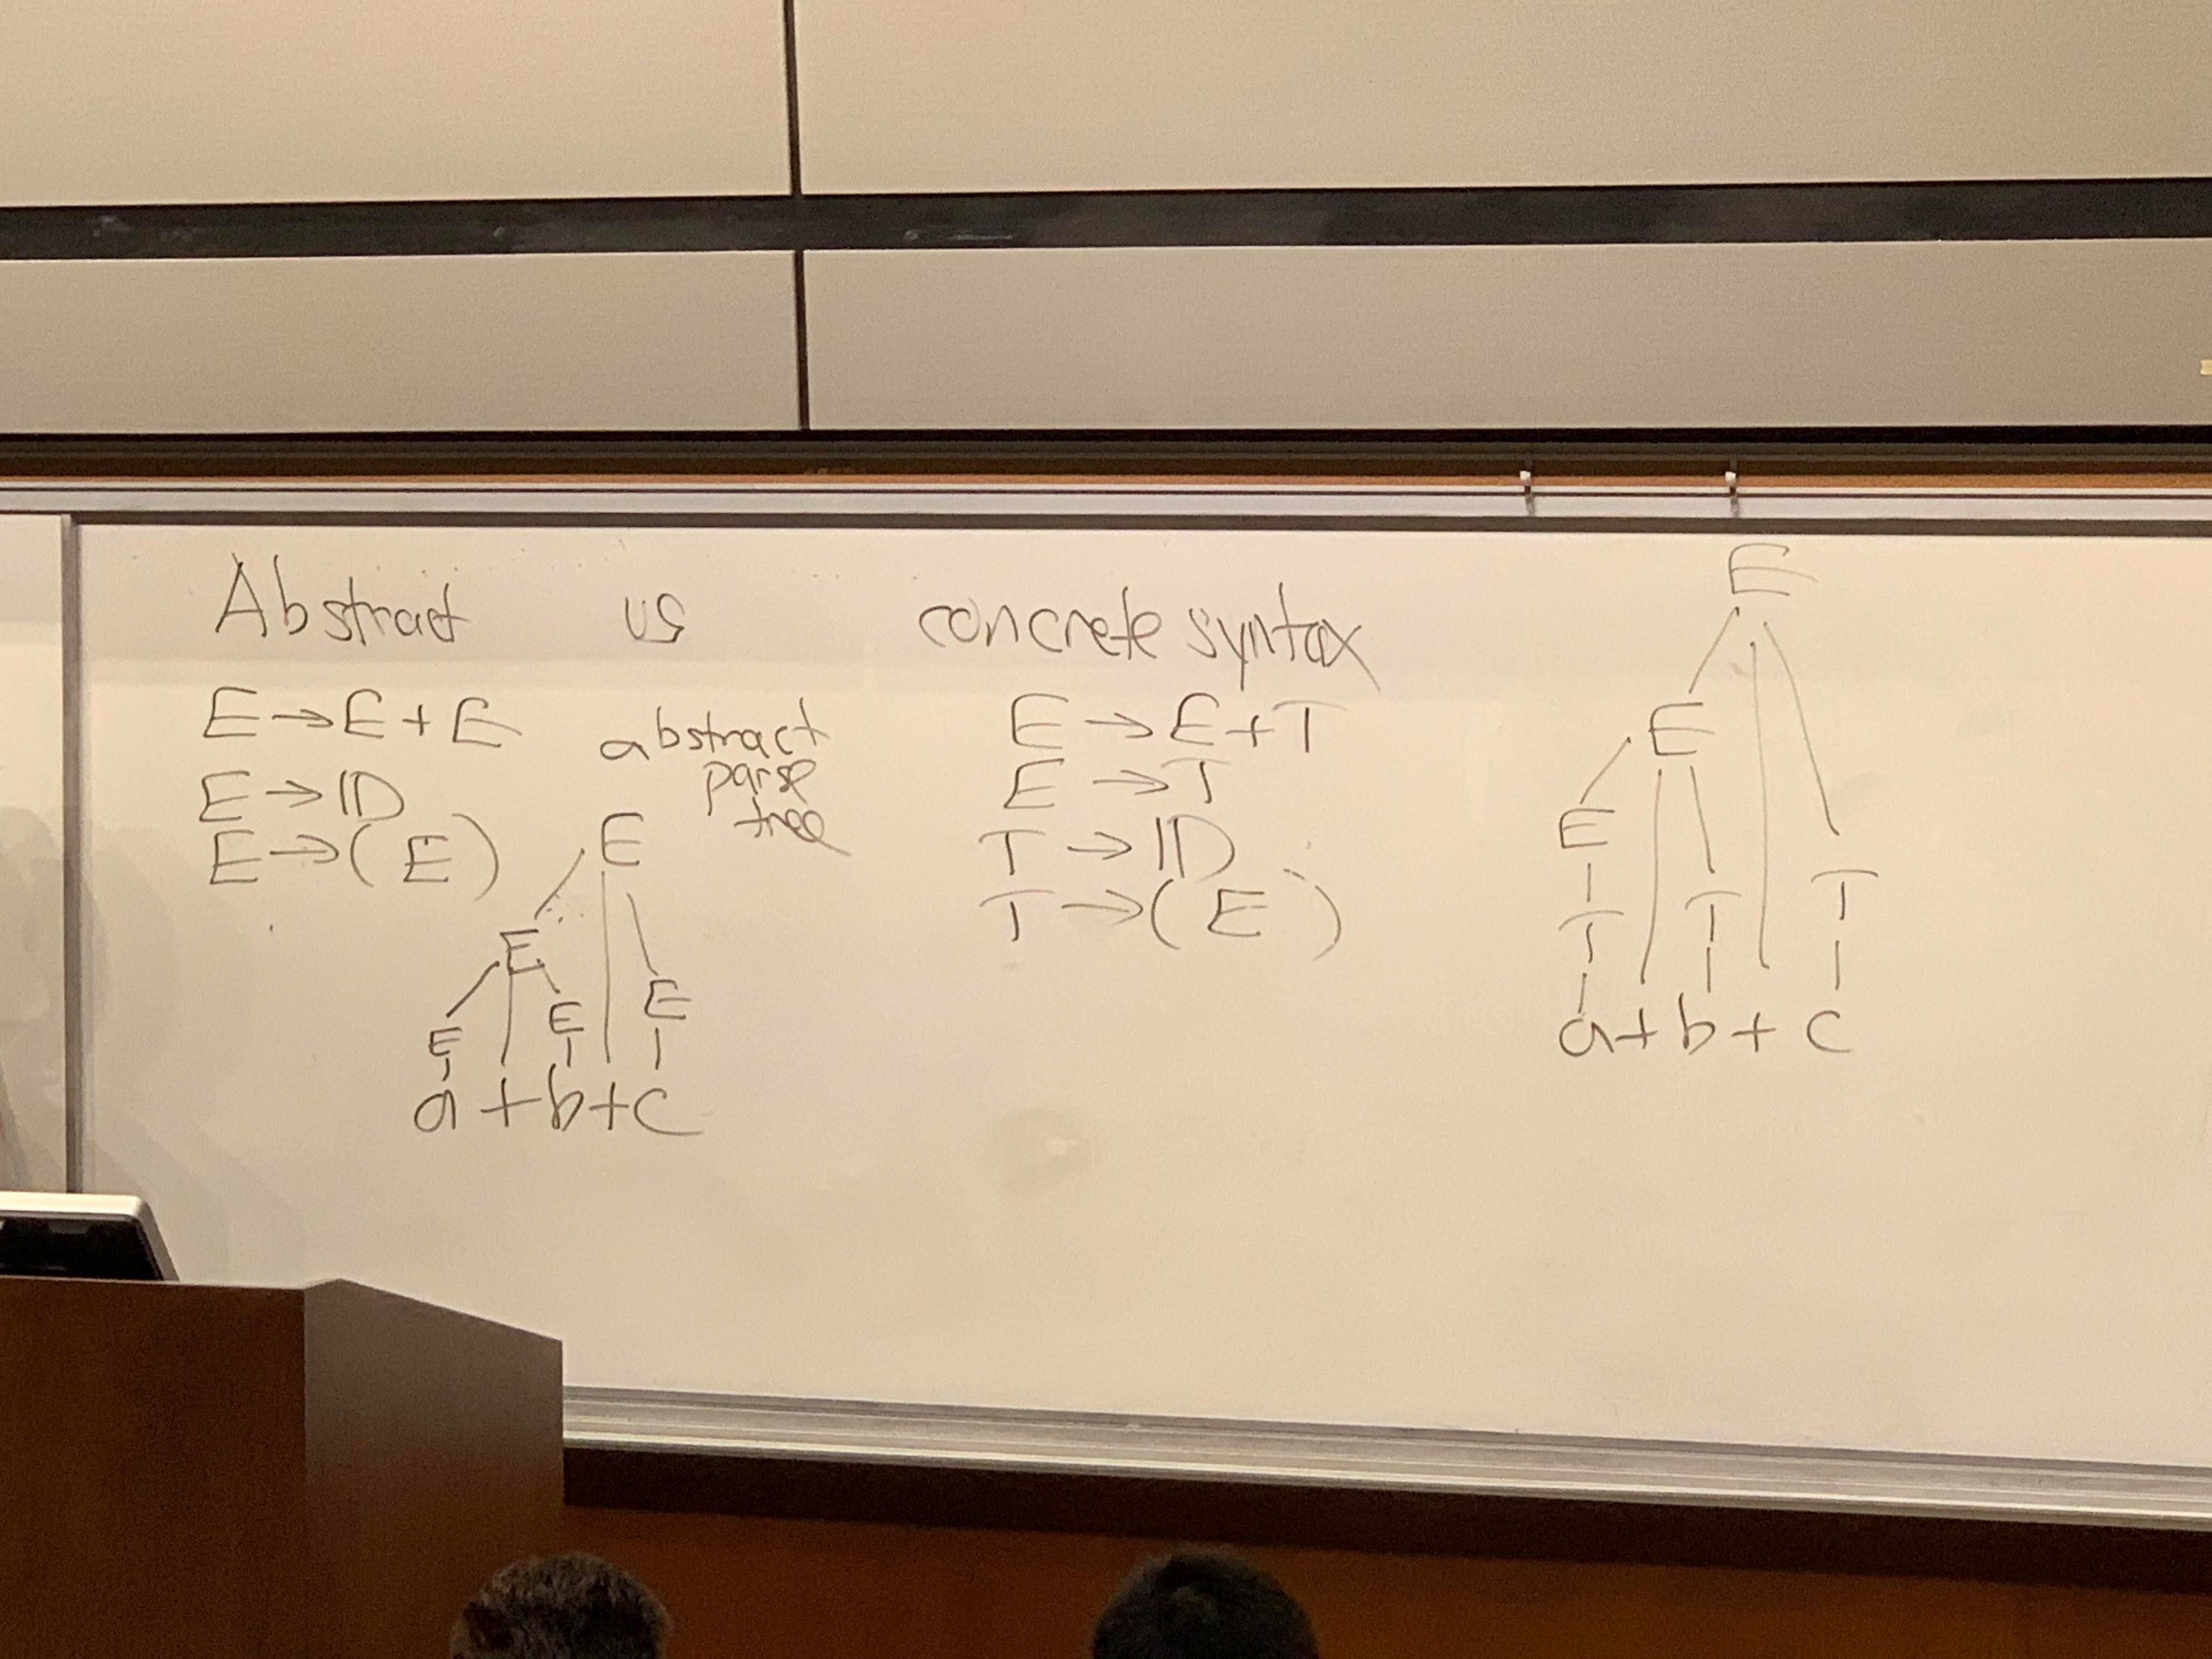 Abstract vs concrete syntax
E → E + E
E → ID
E → ( E )
abstract
parse
tree
E
E
E
E
E
a + b + c
E → E + T
E → T
T → ID
T → ( E )
E
E
E
T
T
T
a + b + c